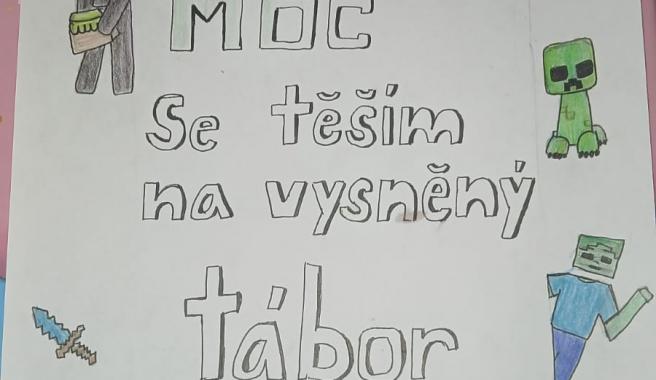 MOC
Se těším
na vysněný
tábor